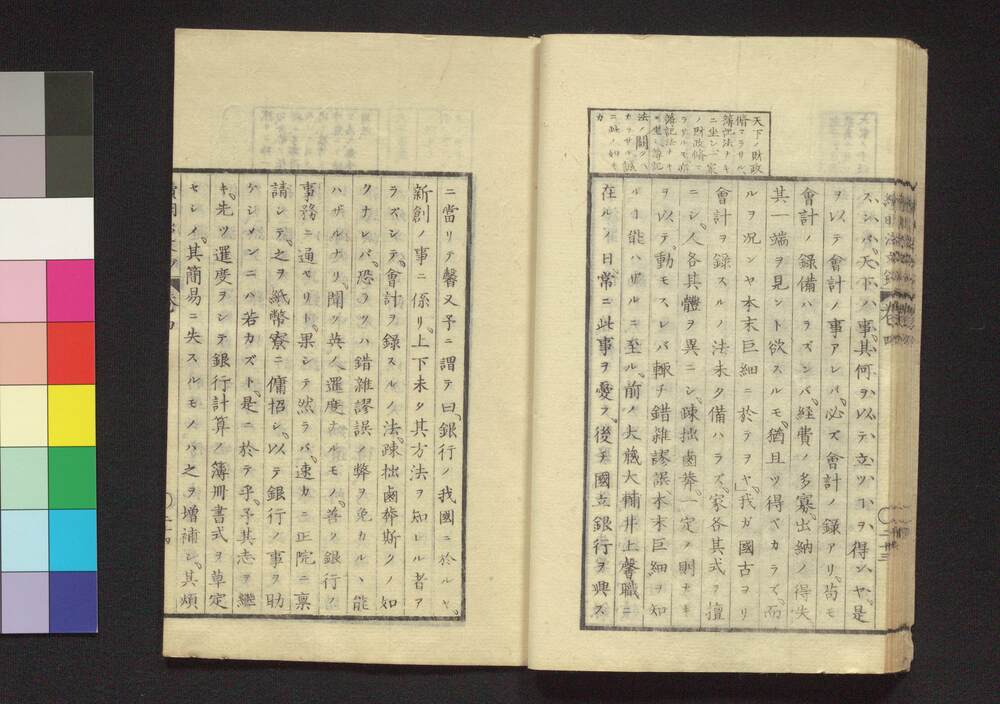 天下ノ財政
ニ坐シ一家
ノ財政脩マ
簿記法ナキ
スンバ、天下ハ事、其何ヲ以テ、立ツコヲ得ンヤ、是
ヲ以テ會計ノ事アレバ、必ズ會計ノ錄アリ、苟モ
會計ノ錄備ハラズンバ、經費ノ多寡出納ノ得失
其一端ヲ見ント欲スルモ、猶且ツ得ベカラズ、而
ルヲ況ンヤ本末巨細ニ於テヲヤ」我ガ國古ヨリ
會計ヲ錄スルノ法未タ備ハラズ、家各其式ヲ擅
ニシ、人各其體ヲ異ニシ、疎拙鹵莽、一定ノ則ナキ
ヲ以テ、動モスレバ輙チ錯雜謬誤本末巨細ヲ知
ルコ能ハザルニ至ル、前ノ大藏大輔井上馨職ニ
在ルノ日、常ニ此事ヲ憂ヲ、後チ國立銀行ヲ興ス
ニ當リテ馨又予ニ謂テ曰、銀行ノ我國ニ於ルヤ、
新創ノ事ニ係リ、上下未タ其方法ヲ知レル者ア
ラズシテ、會計ヲ錄スルノ法、疎拙鹵莽斯クノ如
クナレバ、恐ラクハ錯雜謬誤ノ弊ヲ免カルヽ能
ハザルナリ、聞ク英人暹度ナルモノ、善ク銀行ノ
事務ニ通セリト、果シテ然ラバ、速カニ正院ニ稟
請シテ、之ヲ紙幣寮ニ傭招シ、以テ銀行ノ事ヲ助
ケシメンニハ若カズト、是ニ於テ乎、予其志ヲ繼
キ、先ツ暹度ヲシテ銀行計算ノ簿冊書式ヲ草定
セシメ、其簡易ニ失スルモノハ之ヲ增補シ、其煩